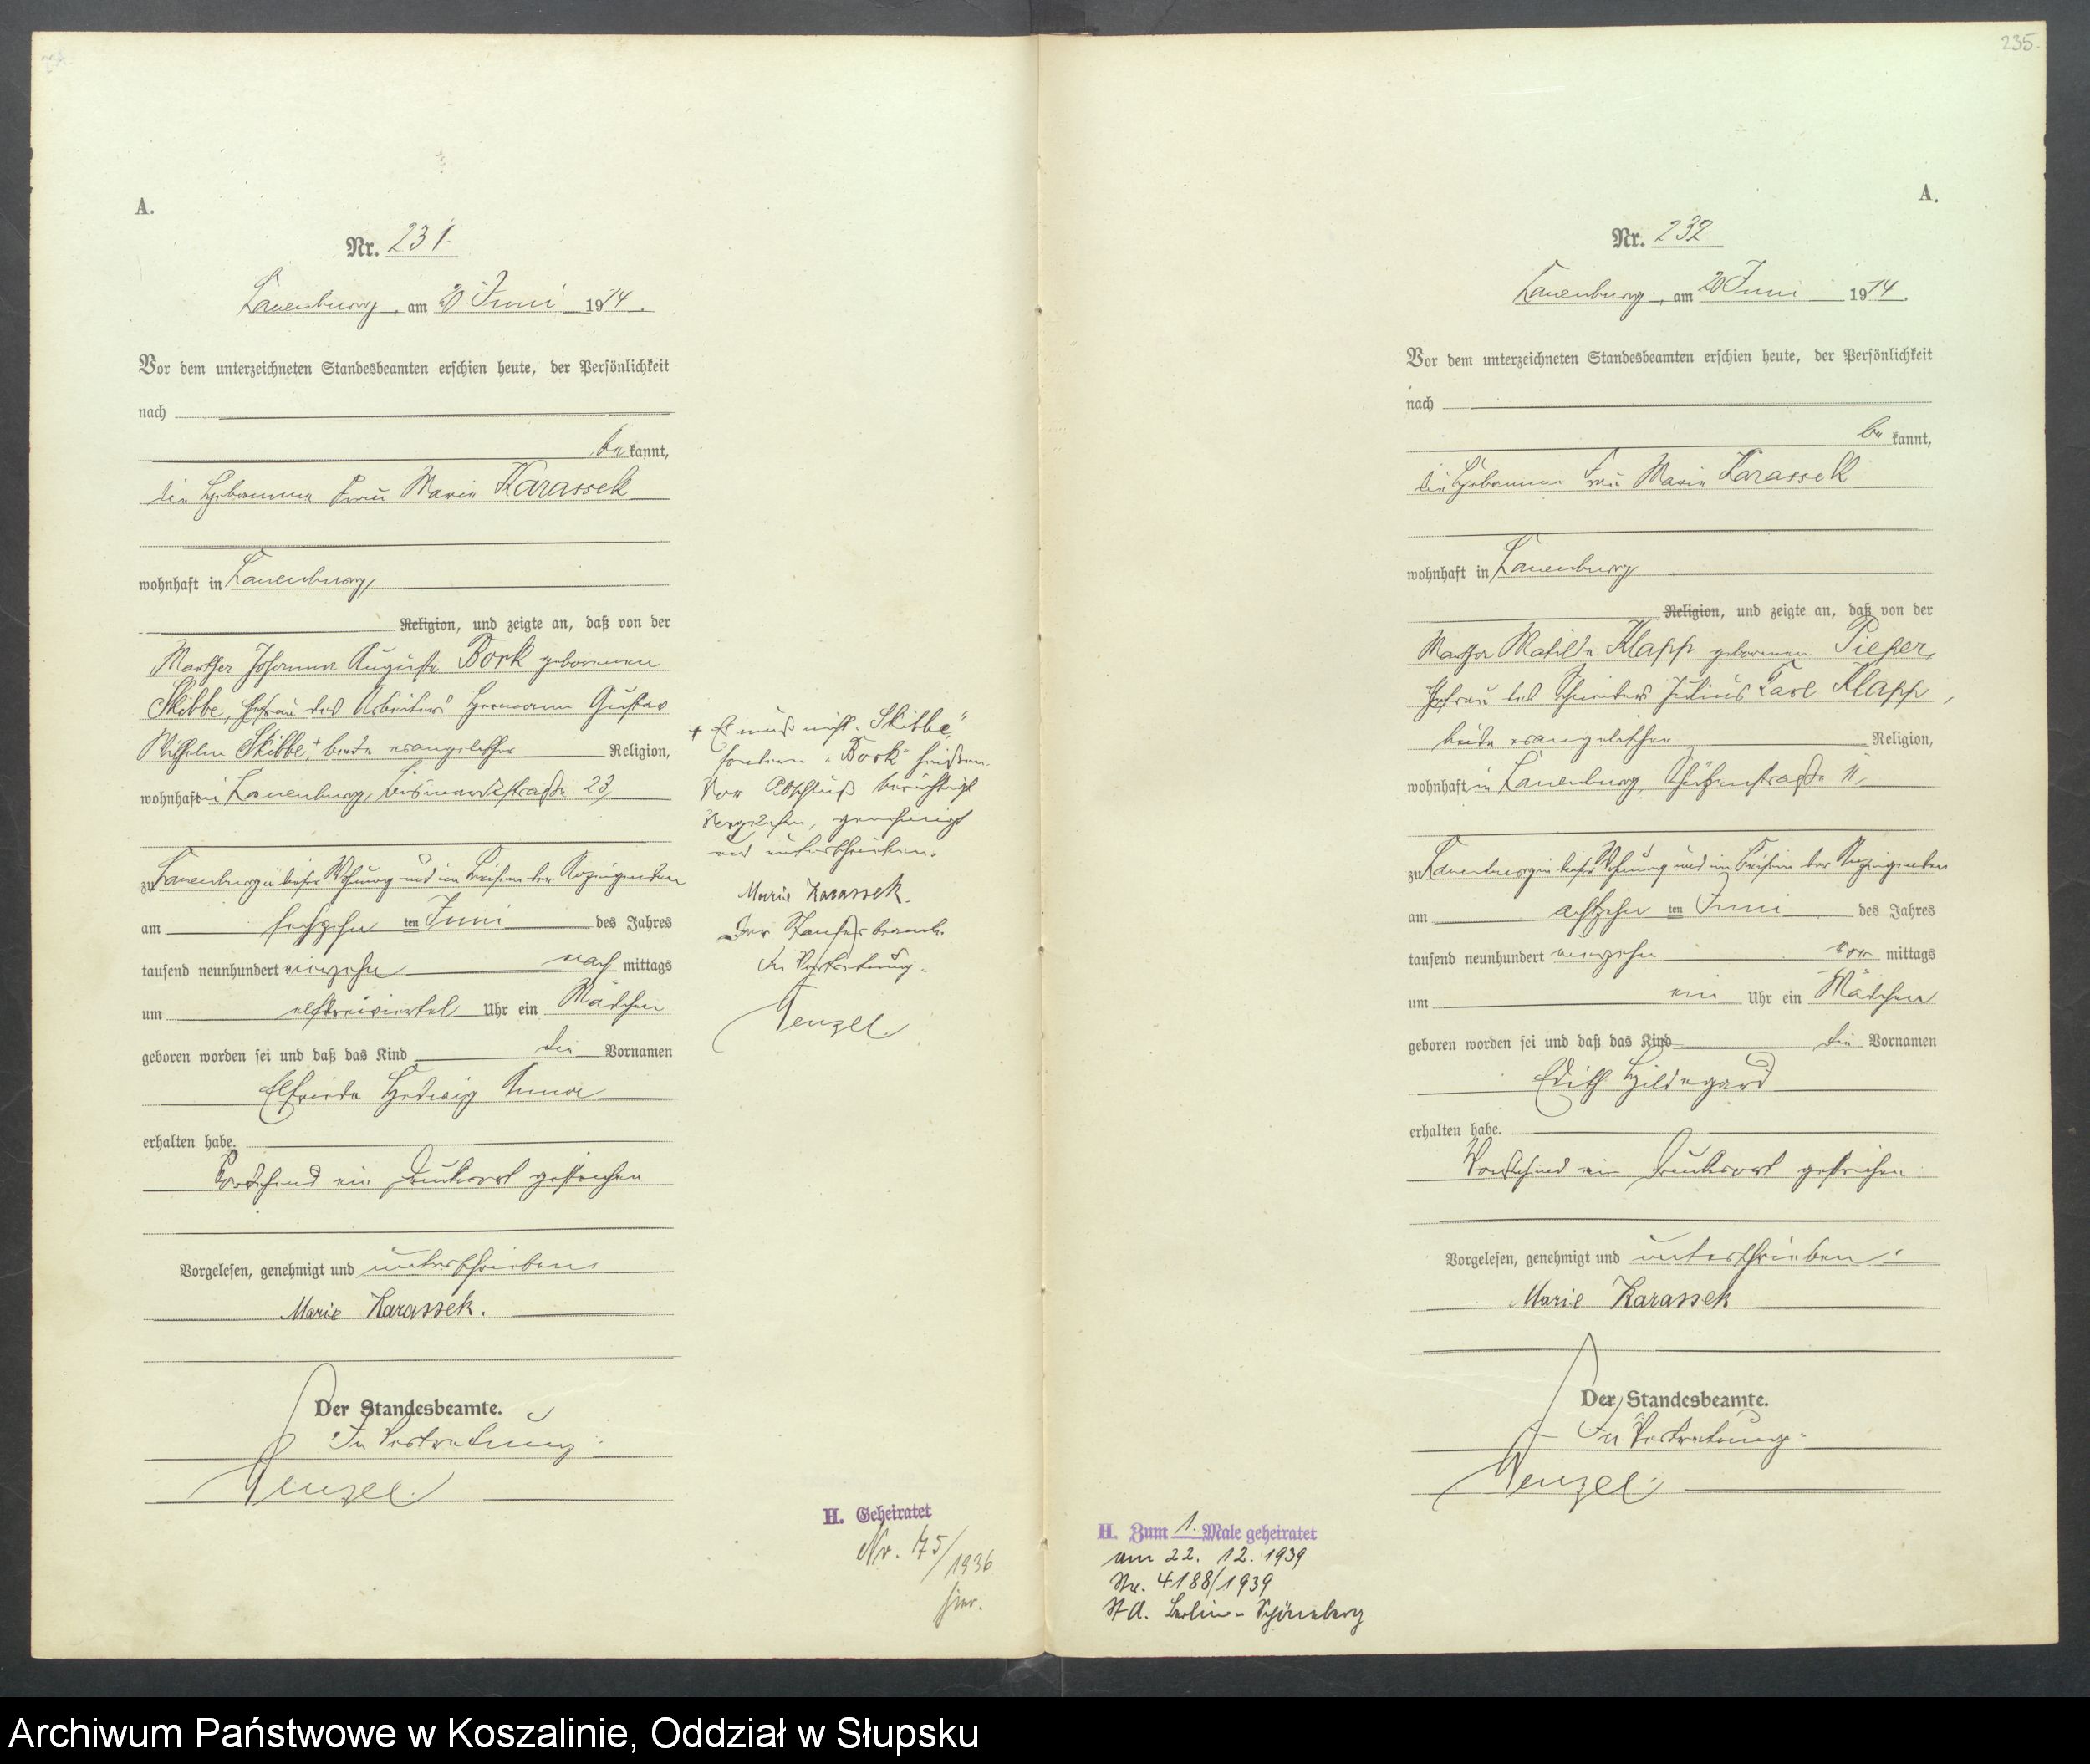 A.
Nr. 231.
Lauenburg, am 20. Juni 1914.
Vor dem unterzeichneten Standesbeamten erschien heute, der Persönlichkeit
nach
be kannt,
die Hebamme Frau Marie Karassek
wohnhaft in Lauenburg,
Religion, und zeigte an, daß von der
Martha Johanna Auguste Bork geborenen
Skibbe, Ehefrau des Arbeiters Hermann Gustav
Wilhelm Skibbe,+ beide evangelischer Religion,
wohnhaft in Lauenburg, Bismarckstraße 23,
zu Lauenburg in dieser Wohnung und im Beisein der Anzeigenden
am sechzehn ten Juni des Jahres
tausend neunhundert vierzehn nach mittags
um elfdreiviertel Uhr ein Mädchen
geboren worden sei und daß das Kind die Vornamen
Elfriede Hedwig Anna
erhalten habe.
Vorstehend ein Druckwort gestrichen
Vorgelesen, genehmigt und unterschrieben
Marie Karassek.
Der Standesbeamte.
In Vertretung:
Wenzel.
+ Es muß nicht „Skibbe“,
sondern „Bork“ heißen.
Vor Abschluß berichtigt
Vorgelesen, genehmigt
und unterschrieben.
Marie Karassek.
Der Standesbeamte.
In Vertretung.
Wenzel.
H. Geheiratet
Nr. 75/1936
hier.
235.
A.
Nr. 232
Lauenburg, am 20 Juni 1914.
Vor dem unterzeichneten Standesbeamten erschien heute, der Persönlichkeit
nach
be kannt,
die Hebamme Frau Marie Karassek
wohnhaft in Lauenburg
Religion, und zeigte an, daß von der
Martha Matilde Klapp geborenen Pieper,
Ehefrau des Schneiders Julius Karl Klapp,
beide evangelischer Religion,
wohnhaft in Lauenburg, Schützenstraße 11,
zu Lauenburg in dieser Wohnung und im Beisein der Anzeigenden
am achtzehn ten Juni des Jahres
tausend neunhundert vierzehn vor mittags
um ein Uhr ein Mädchen
geboren worden sei und daß das Kind die Vornamen
Edith Hildegard
erhalten habe.
Vorstehend ein Druckwort gestrichen
Vorgelesen, genehmigt und unterschrieben:
Marie Karassek
Der Standesbeamte.
In Vertretung:
Wenzel.
H. Zum 1. Male geheiratet
am 22. 12. 1939
Nr. 4188/1939
St A. Berlin-Schöneberg
Archiwum Państwowe w Koszalinie, Oddział w Słupsku